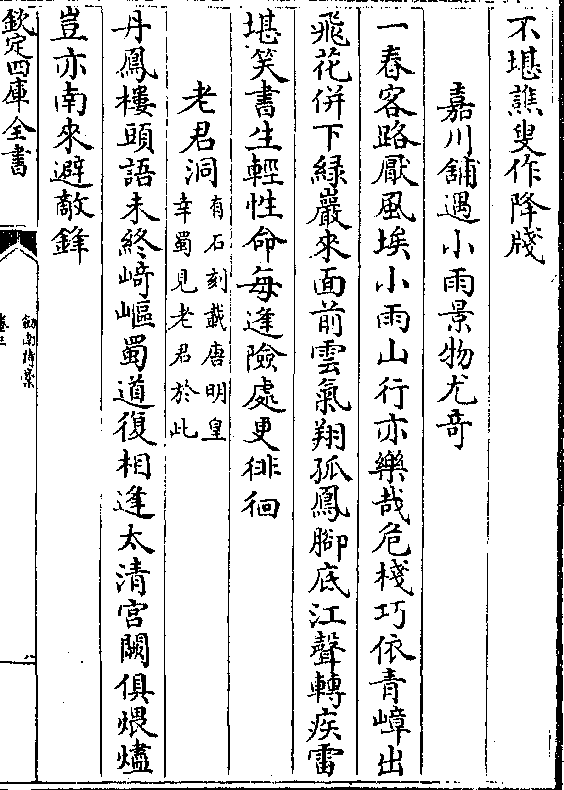 不堪譙叟作降牋
嘉川舖遇小雨景物尤竒
一春客路厭風埃小雨山行亦樂哉危棧巧依青嶂出
飛花併下緑巖來面前雲氣翔孤鳳腳底江聲轉疾雷
堪笑書生輕性命每逢險處更徘徊
老君洞有石刻載唐明皇幸蜀見老君於此
丹鳳樓頭語未終崎嶇蜀道復相逢太清宫闕俱煨燼
豈亦南來避敵鋒
欽定四庫全書
劍南詩藁
卷三
八